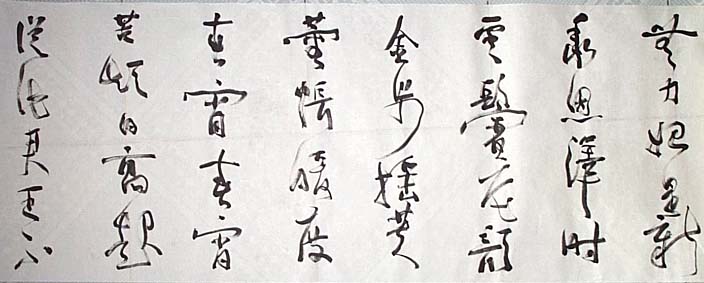 無力始是新
承恩澤時
雲鬢花顔
金步搖芙
蓉帳暖度
春宵春宵
苦短日高起
從此君王不